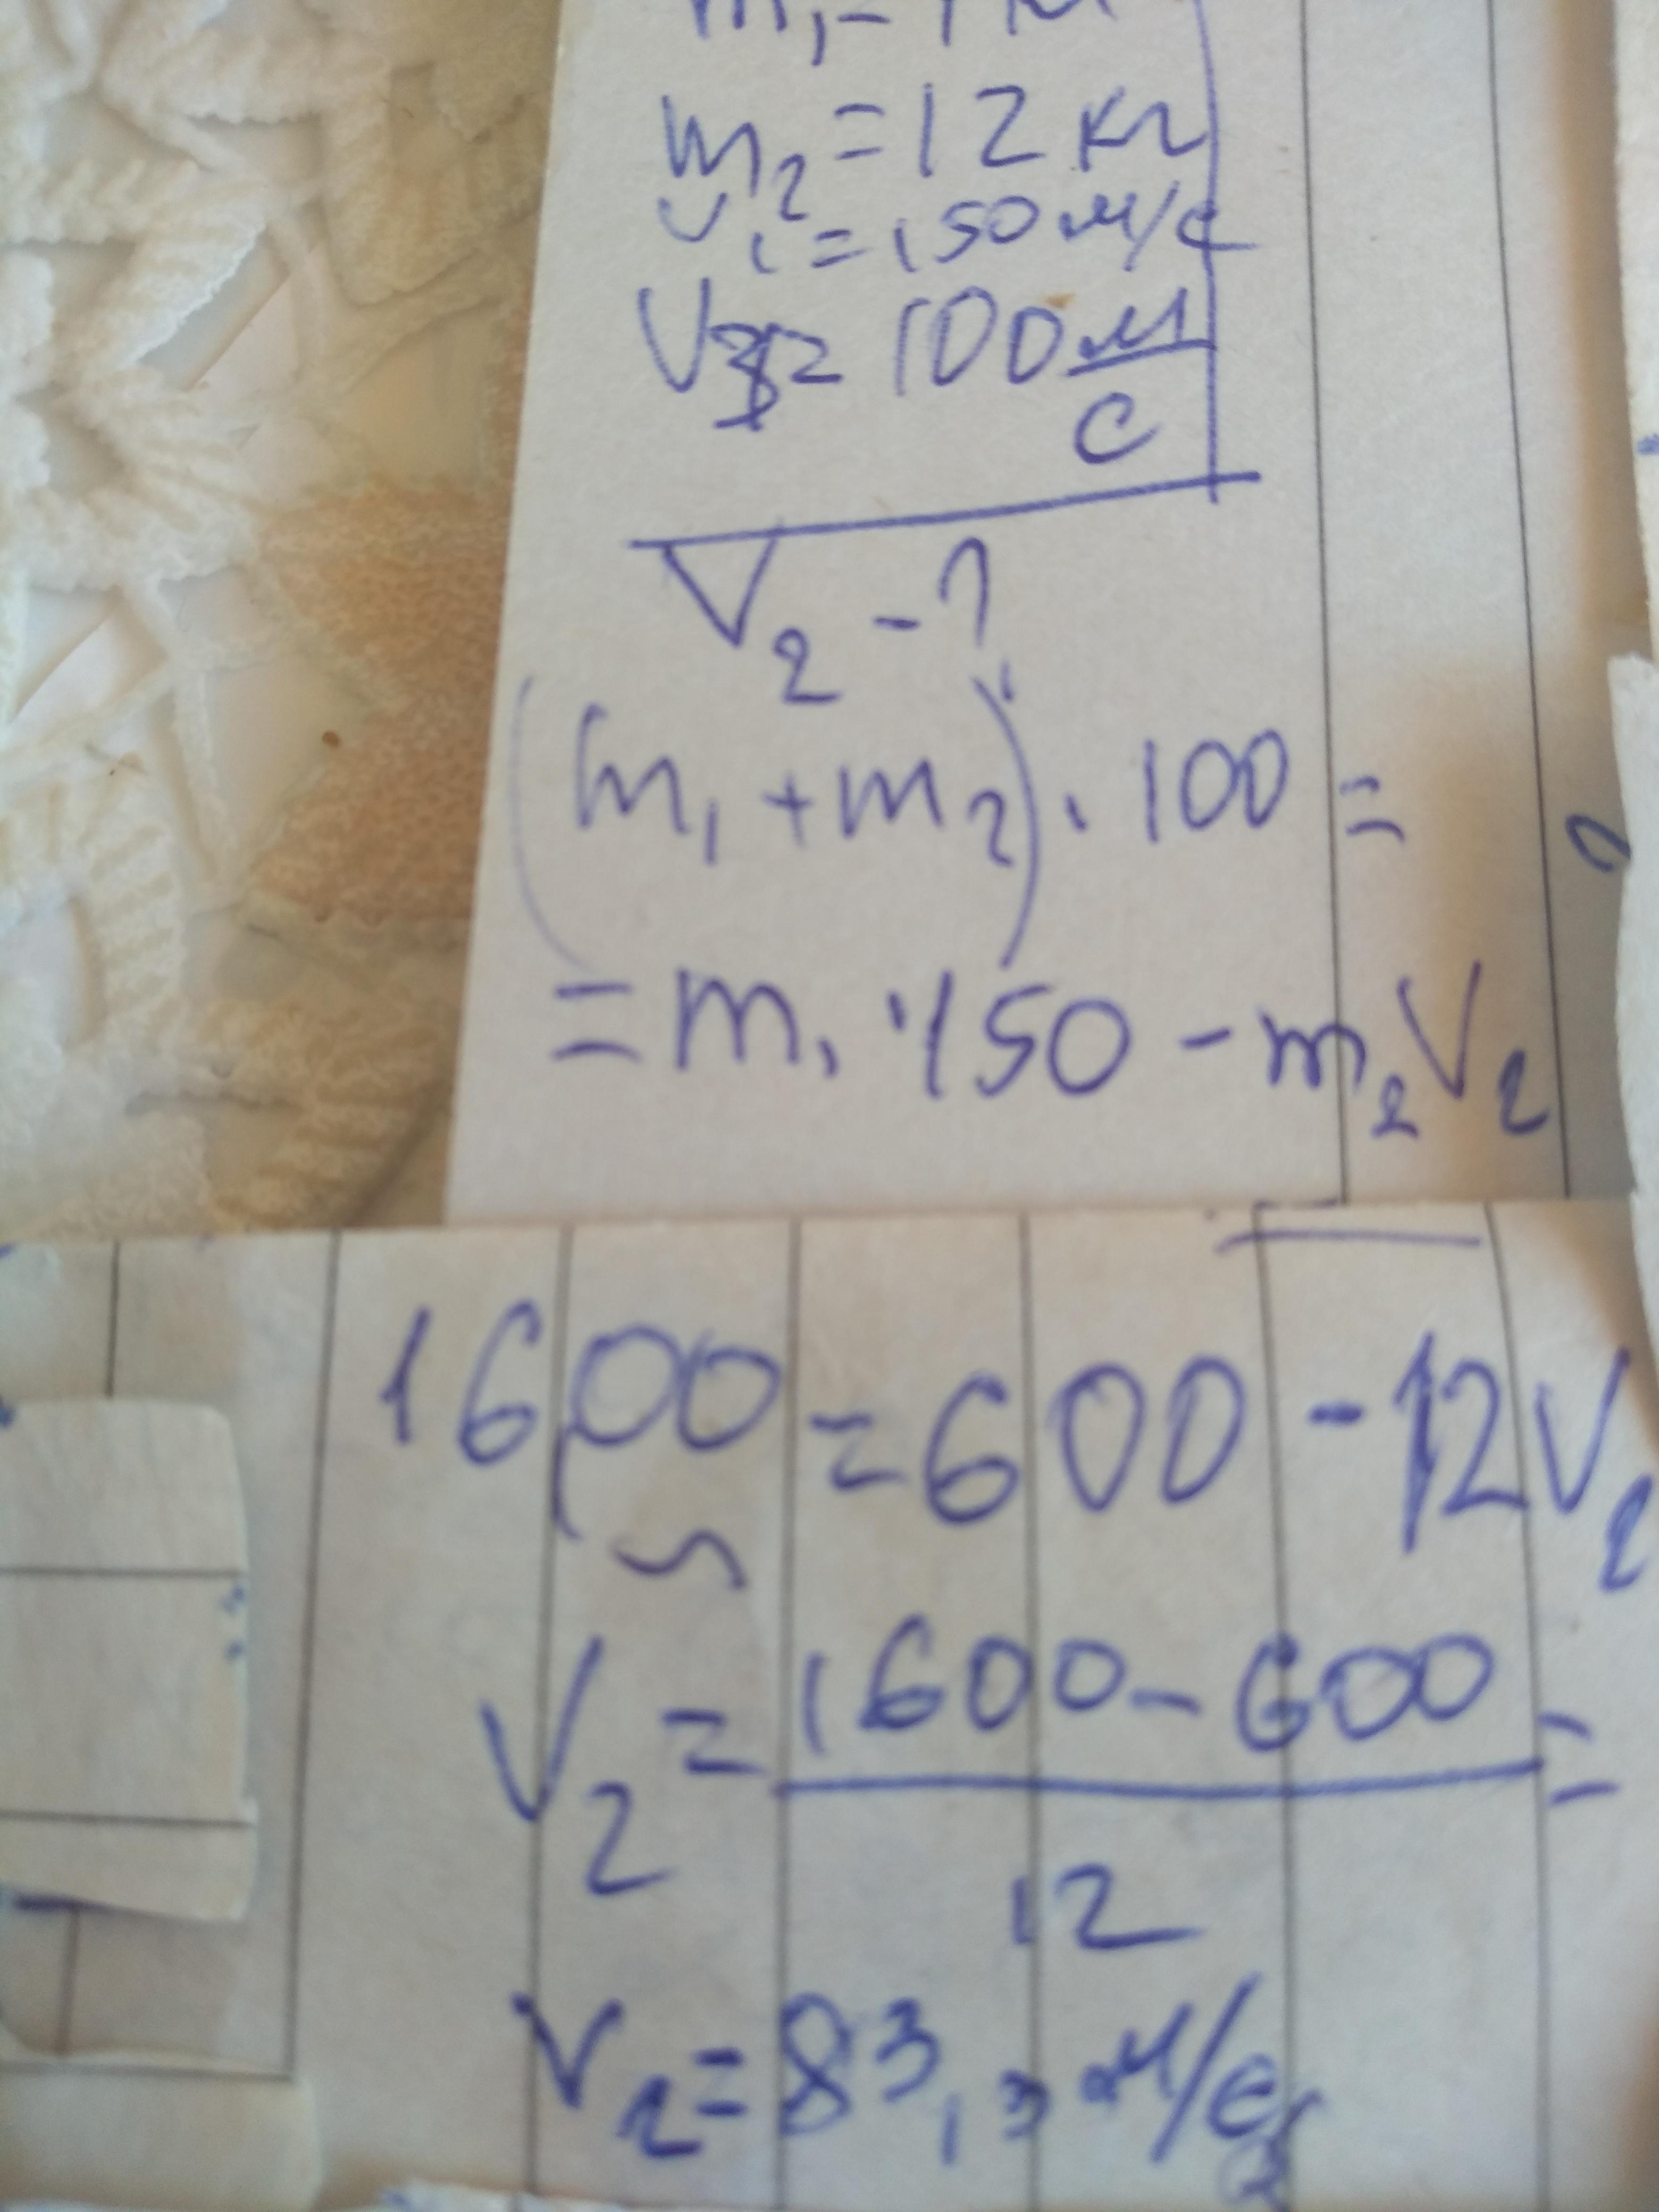 m₂ = 12 кг
v₁ = 150 м/с
V₃ = 100 м/с
V₂ - ?
(m₁ + m₂) · 100 =
= m₁ · 150 - m₂V₂
1600 = 600 - 12V₂
V₂ = 1600 - 600 / 12 =
V₂ = 83,3 м/с